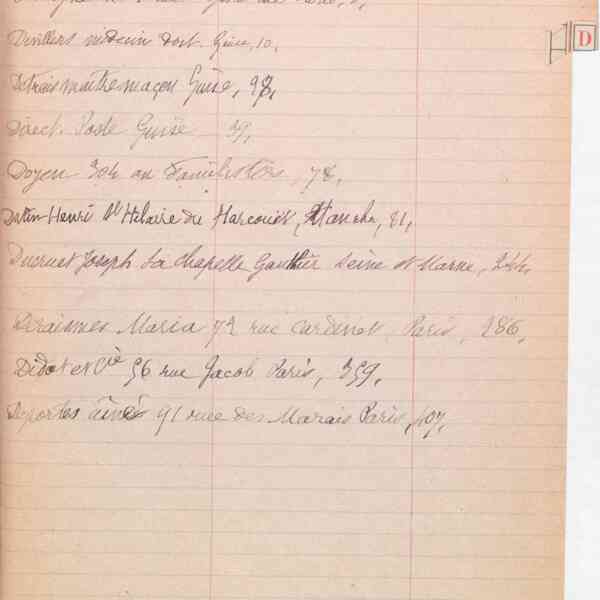 D
Devillers médecin doct. Guise, 10,
Detrais maître maçon Guise, 98,
Direct. Poste Guise 39,
Doyen au Familistère, 78,
Datin Henri St Hilaire du Harcouët, Manche, 81,
Ducruet Joseph La Chapelle Gauthier Seine et Marne, 244,
Deraismes Maria 72 rue Cardinet, Paris, 286,
Didot et Cie 56 rue Jacob Paris, 359,
Deportes aîné 91 rue des Marais Paris, 407,